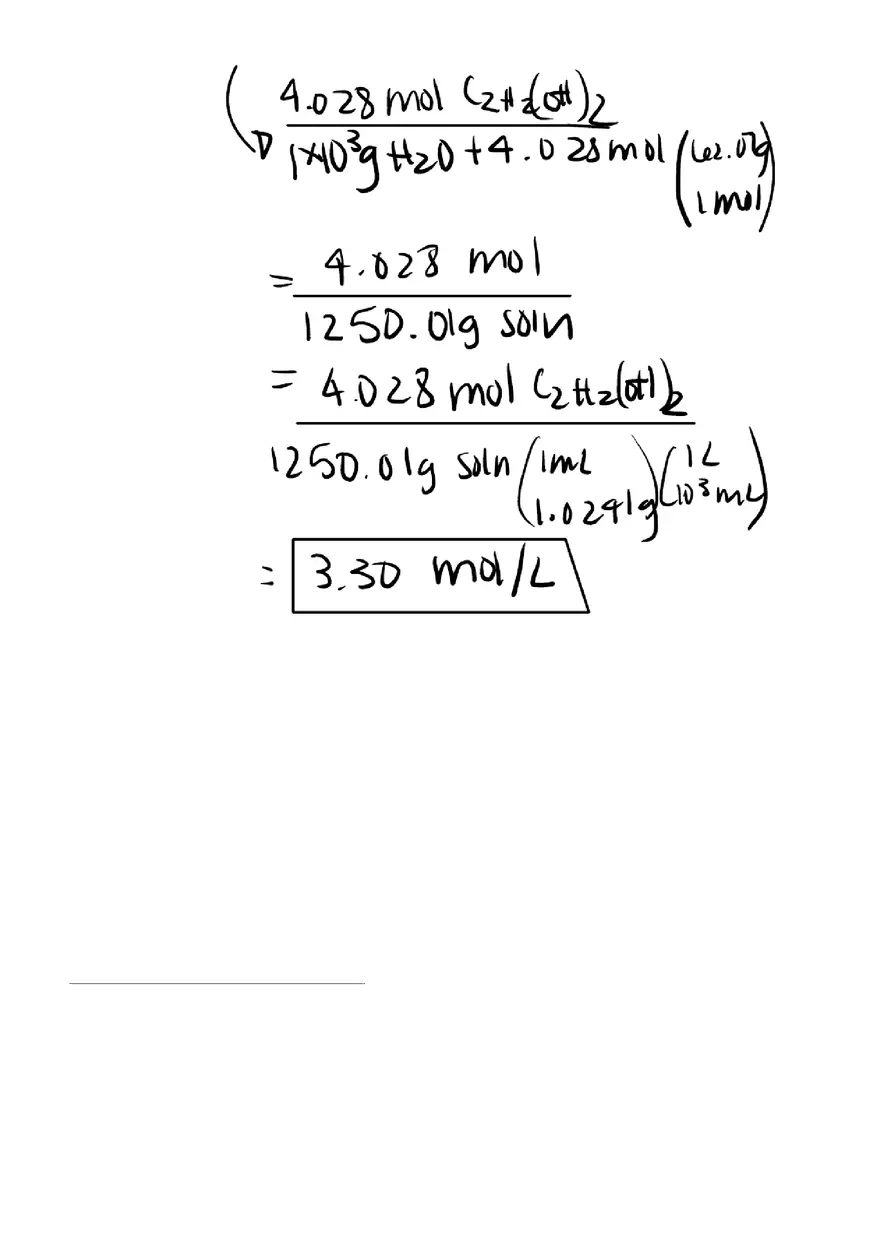 4.028 mol C2H2(OH)2
1×10³g H2O + 4.028 mol (62.07g
1 mol)
= 4.028 mol
1250.01g soln
= 4.028 mol C2H2(OH)2
1250.01g soln (1mL)(1L
1.0241g 10³mL)
= 3.30 mol/L